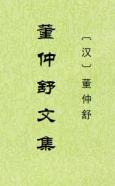 董仲舒文集
〔汉〕董仲舒